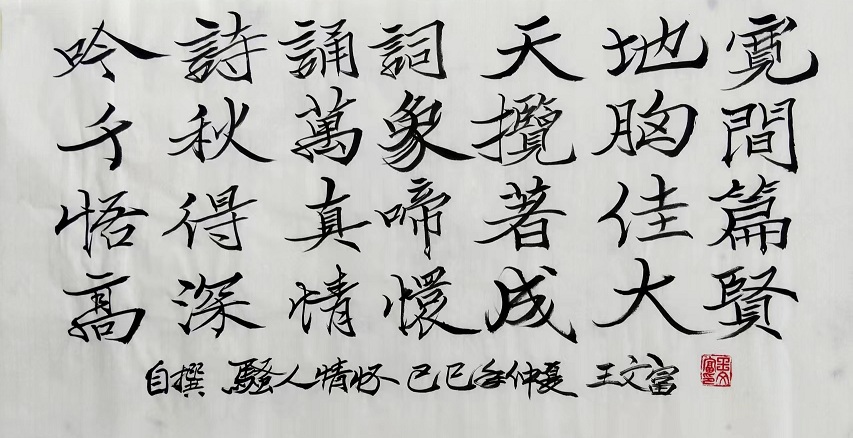 吟詩誦詞天地寬
千秋萬象攬胸間
悟得真啼著佳篇
高深情懷成大賢
自撰 騷人情怀 己巳年仲夏 王文富